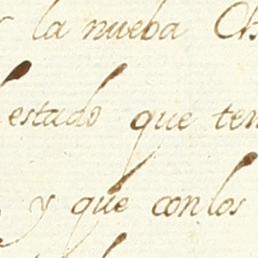 la nueba
estado que
y que con los